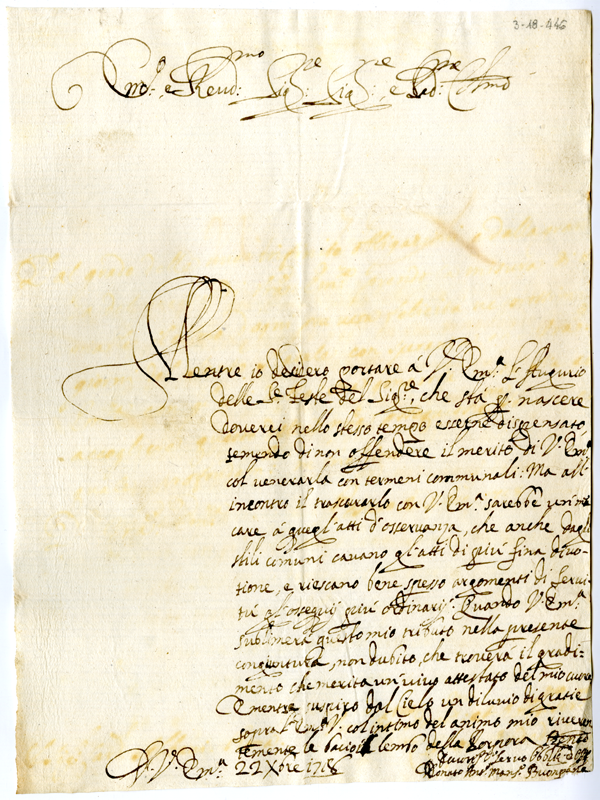 3-18-446
Em.o e Reud: Sig.re Sig.re e Pad.
Mentre io desidero portare á V. Em.a l'Augurio
delle S.e Feste del Sig.re, che stá p. nascere
doverei nello stesso tempo esserne dispensato,
temendo di non offendere il merito di V. Em.a
col venerarla con termeni communali: Ma all'
incontro il trascurarlo con V. Em.a sarebbe un
care á quegl'atti d'osservanza, che anche dagli
stili comuni cavano gl'atti di piú fina divo-
tione, e riescano bene spesso argomenti di servi-
tú gl'ossequij piú ordinarij. Quando V. Em.a
sublimerá questo mio tributo nella presente
congiuntura, non dubito, che troverá il gradi-
mento che merita un vivo attestato del mio cuore
mentre dal Cielo un diluvio di gratie
sopra l' Em.a V. col intimo del animo mio riveren
temente le bacio il lembo della Porpora
D. V. Em.a 22 Xbre 1718
Servo
Donato